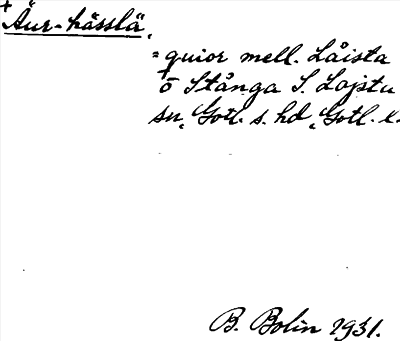 +
Äur-hässlä,
= quior mell. Låista
o Stånga S. Lojstu
sn, Gotl. s. hd, Gotl. l.
B. Bolin 1931.